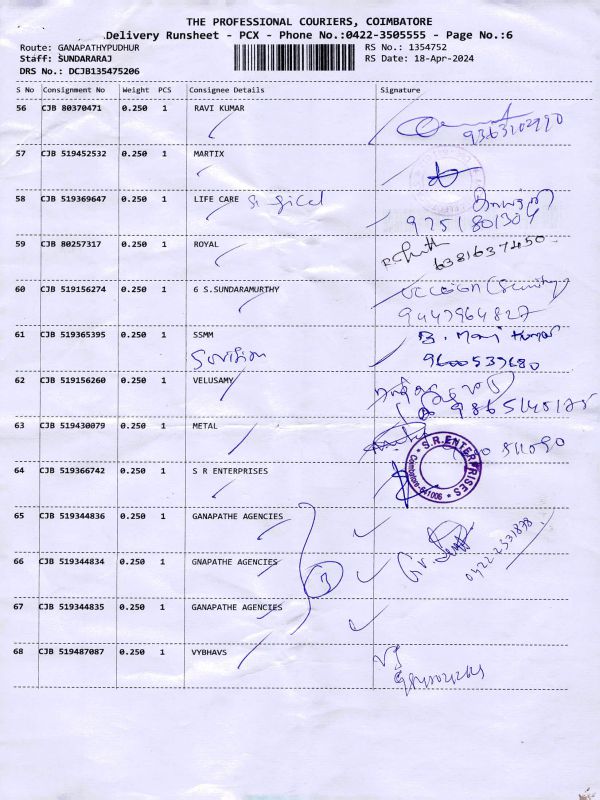 THE PROFESSIONAL COURIERS, COIMBATORE
Delivery Runsheet - PCX - Phone No.:0422-3505555 - Page No.:6
Route: GANAPATHYPUDHUR RS No.: 1354752
Staff: SUNDARARAJ RS Date: 18-Apr-2024
DRS No.: DCJB135475206
S No Consignment No Weight PCS Consignee Details Signature
56 CJB 80370471 0.250 1 RAVI KUMAR
9363102990
57 CJB 519452532 0.250 1 MARTIX
58 CJB 519369647 0.250 1 LIFE CARE
9751801304
59 CJB 80257317 0.250 1 ROYAL
6381637450
60 CJB 519156274 0.250 1 6 S.SUNDARAMURTHY
9447964827
61 CJB 519365395 0.250 1 SSMM B. Mani Kumar
9600537680
62 CJB 519156260 0.250 1 VELUSAMY
63 CJB 519430079 0.250 1 METAL
S.R.ENTERPRISES
Coimbatore-641006
64 CJB 519366742 0.250 1 S R ENTERPRISES
65 CJB 519344836 0.250 1 GANAPATHE AGENCIES
66 CJB 519344834 0.250 1 GNAPATHE AGENCIES 3
0422-2531878
67 CJB 519344835 0.250 1 GANAPATHE AGENCIES
68 CJB 519487087 0.250 1 VYBHAVS